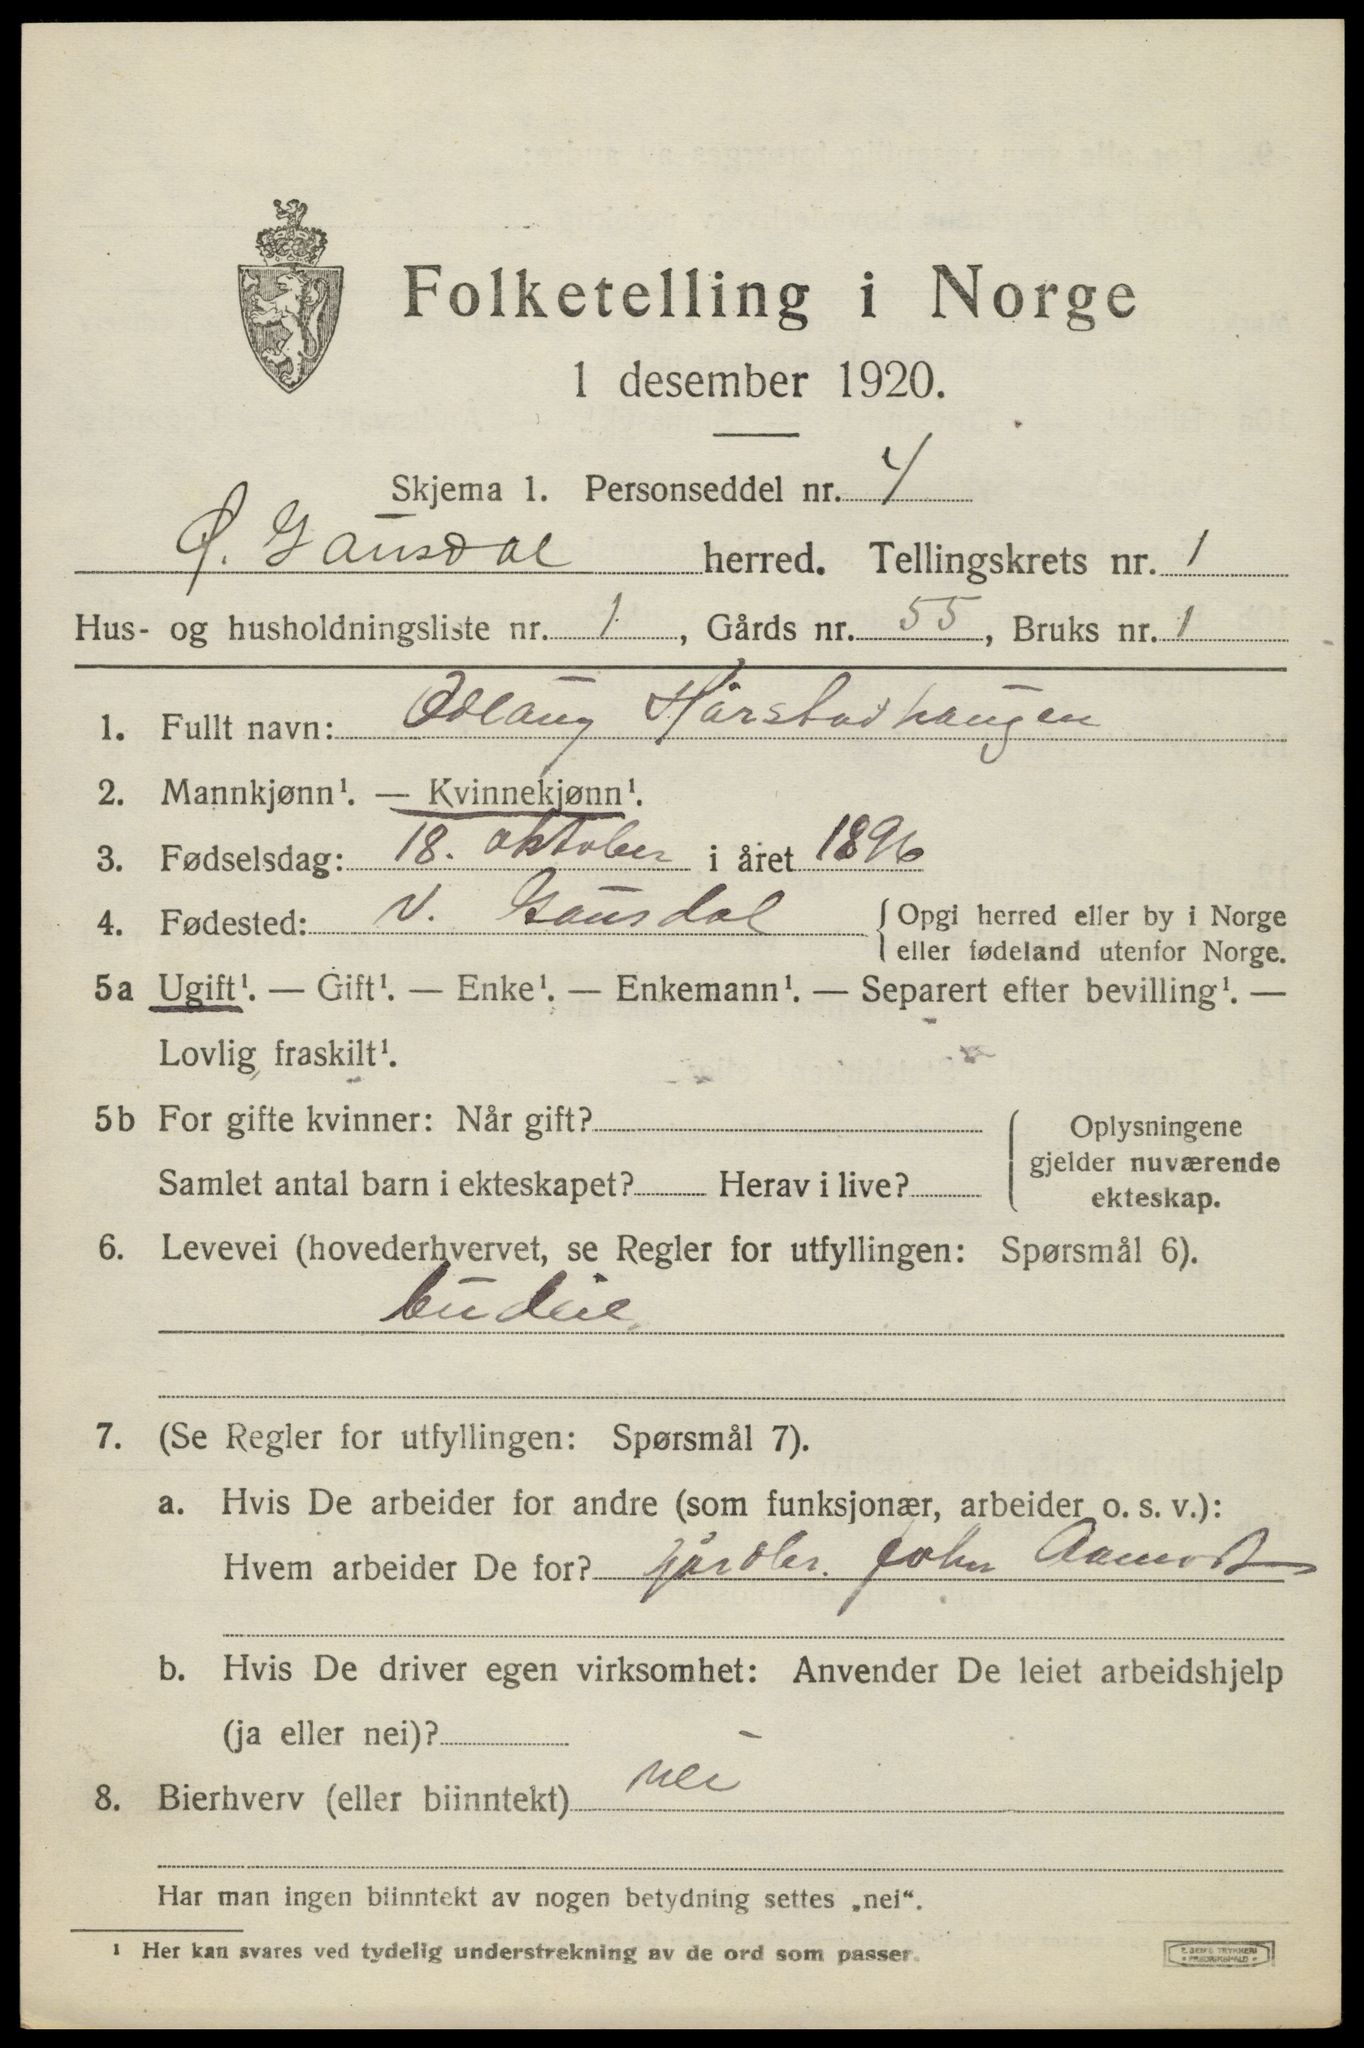 Folketelling i Norge
1 desember 1920.
Skjema 1. Personseddel nr. 4
Ø. Gausdal herred. Tellingskrets nr. 1
Hus- og husholdningsliste nr. 1, Gårds nr. 55, Bruks nr. 1
1. Fullt navn: Odlaug Hårstadhaugen
2. Mannkjønn¹. — Kvinnekjønn¹.
3. Fødselsdag: 18. oktober i året 1896
4. Fødested: V. Gausdal { Opgi herred eller by i Norge
eller fødeland utenfor Norge.
5a Ugift¹. — Gift¹. — Enke¹. — Enkemann¹. — Separert efter bevilling¹. —
Lovlig fraskilt¹.
5b For gifte kvinner: Når gift?
Samlet antal barn i ekteskapet? Herav i live?
Oplysningene
gjelder nuværende
ekteskap.
6. Levevei (hovederhvervet, se Regler for utfyllingen: Spørsmål 6).
budeie
7. (Se Regler for utfyllingen: Spørsmål 7).
a. Hvis De arbeider for andre (som funksjonær, arbeider o. s. v.):
Hvem arbeider De for? gårdbr. John
b. Hvis De driver egen virksomhet: Anvender De leiet arbeidshjelp
(ja eller nei)?
8. Bierhverv (eller biinntekt) nei
Har man ingen biinntekt av nogen betydning settes „nei".
¹ Her kan svares ved tydelig understrekning av de ord som passer.